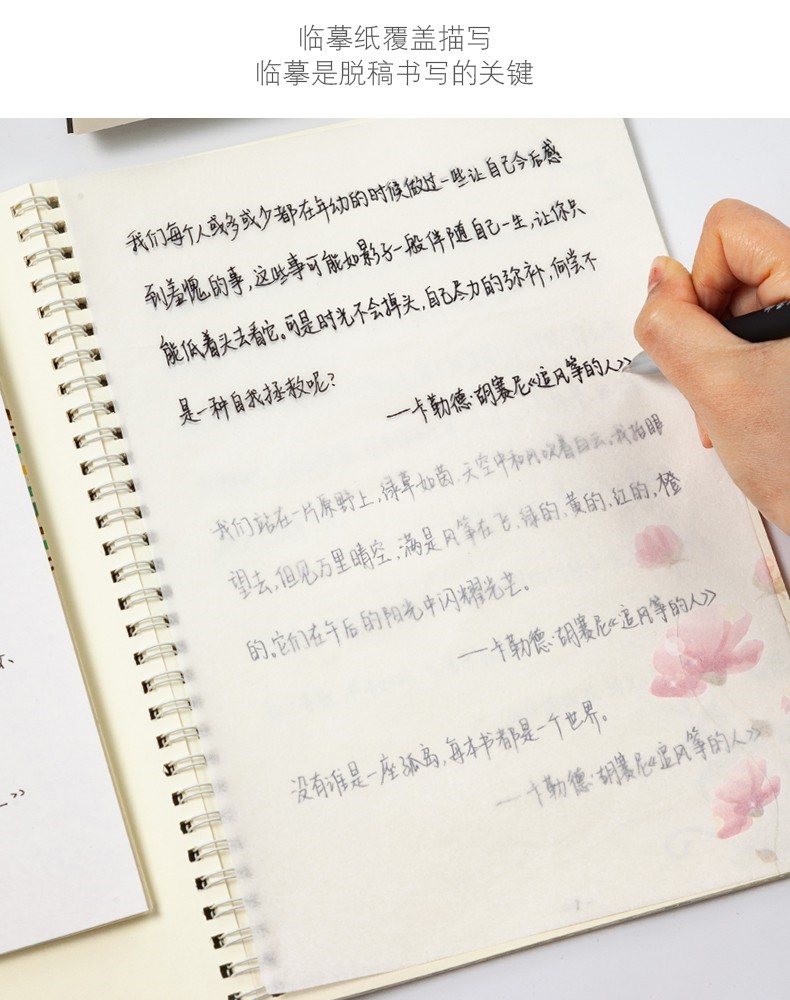 临摹纸覆盖描写
临摹是脱稿书写的关键
我们每个人或多或少都在年幼的时候做过一些让自己今后感
到羞愧的事，这些事可能如影子一般伴随自己一生，让你只
能低着头去看它。可是时光不会掉头，自己尽力的弥补，何尝不
是一种自我拯救呢？
——卡勒德·胡赛尼《追风筝的人》
我们站在一片原野上，绿草如茵，天空中和风吹着白云。我抬眼
望去，但见万里晴空，满是风筝在飞，绿的、黄的、红的、橙
的。它们在午后的阳光中闪耀光芒。
——卡勒德·胡赛尼《追风筝的人》
没有谁是一座孤岛，每本书都是一个世界。
——卡勒德·胡赛尼《追风筝的人》